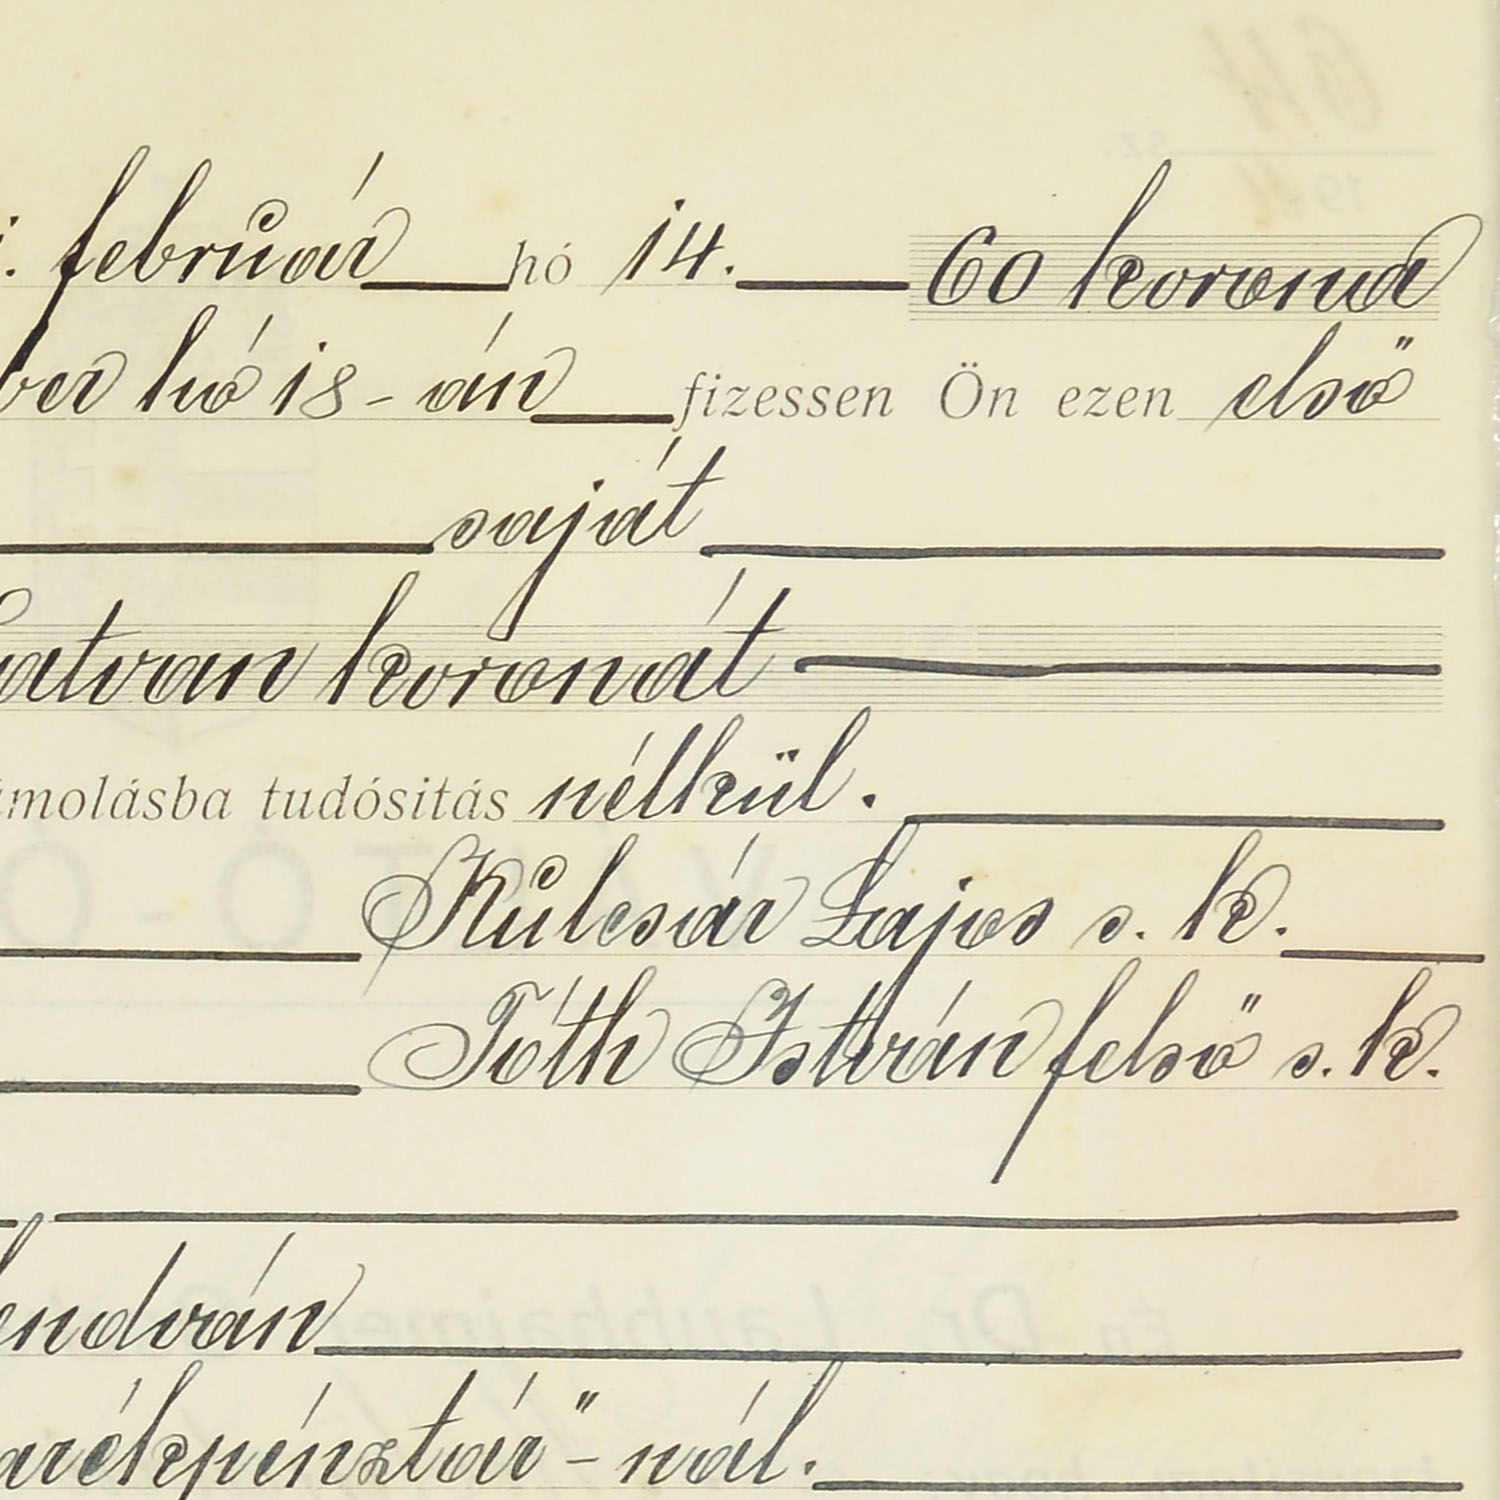 február hó 14. 60 korona
ber hó 18-án fizessen Ön ezen első
saját
hatvan koronát
ámolásba tudósitás nélkül.
Kulcsár Lajos s. k.
Tóth István felső s. k.
endván
arékpénztár"-nál.